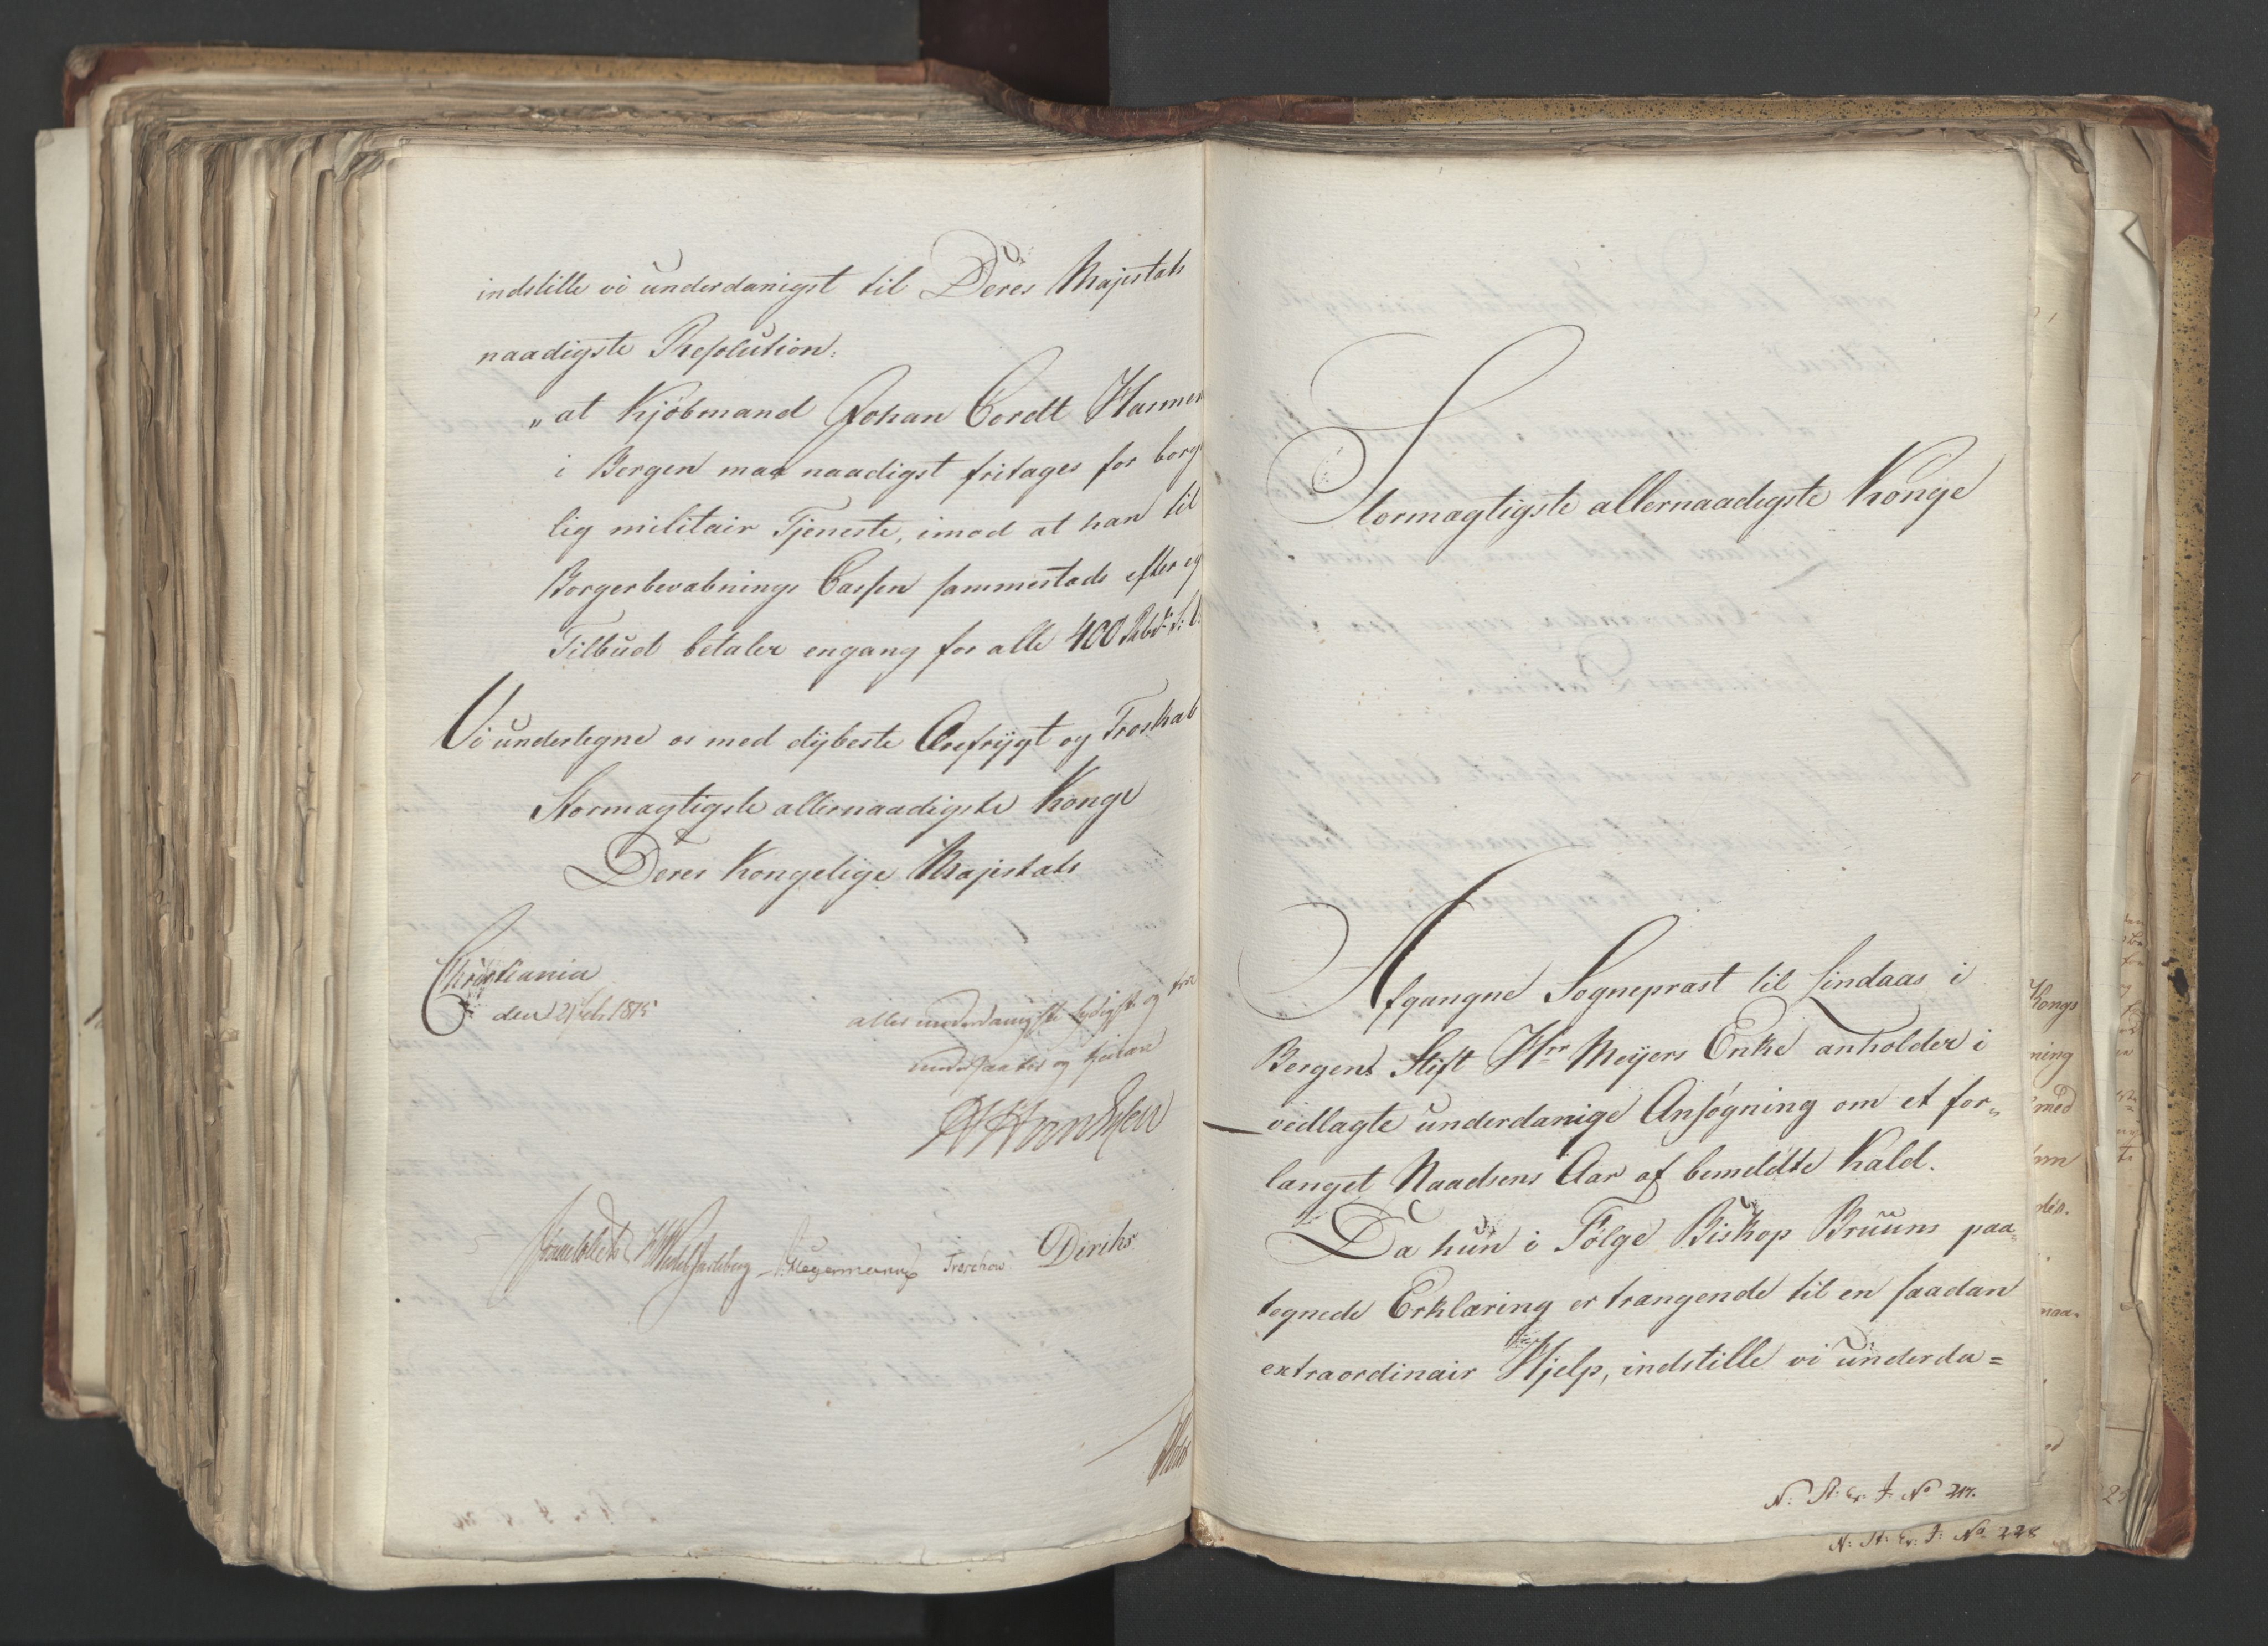 indstille vi underdanigst til Deres Majestæts
naadigste Resolution:
„at Kjöbmand Johan Cordt Harmen
i Bergen maa naadigst fritages for borg
lig militair Tjeneste, imod at han til
Borgerbevæbnings Cassen sammestads efter eg
Tilbud betaler engang for alle 400 Rbd. S.
Vi undertegne os med dÿbeste Ærefrÿgt og Troskab
Stormægtigste allernaadigste Konge
Deres Kongelige Majestæts
Christiania
den 21 Feb. 1815
aller underdanigste lydigste og tro
undersaatter og tienere
Sommerhielm Wedel Jarlsberg Hegermann Treschow Diriks
Stormægtigste allernaadigste Konge
Afgangne Sognepræst til Lindaas i
Bergens Stift Hrr Meÿers Enke anholder i
vedlagte underdanige Ansøgning om et for„
længet Naadsens Aar af bemeldte Kald.
Da hun i Følge Biskop Bruuns paa„
tegnede Erklæring er trængende til en saadan
extraordinair Hjelp, indstille vi underda=
N: St: Ex. J. No 217.
N: St: Ex: J: No 228
Kongs
ning
med
den.
naa„